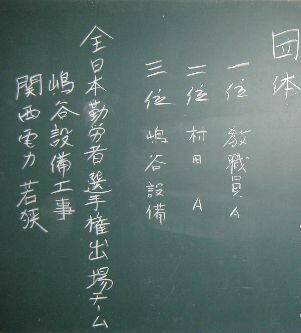 団体
一位 教職員A
二位 村田 A
三位 嶋谷設備
全日本勤労者選手権出場チーム
嶋谷設備工事
関西電力 若狭